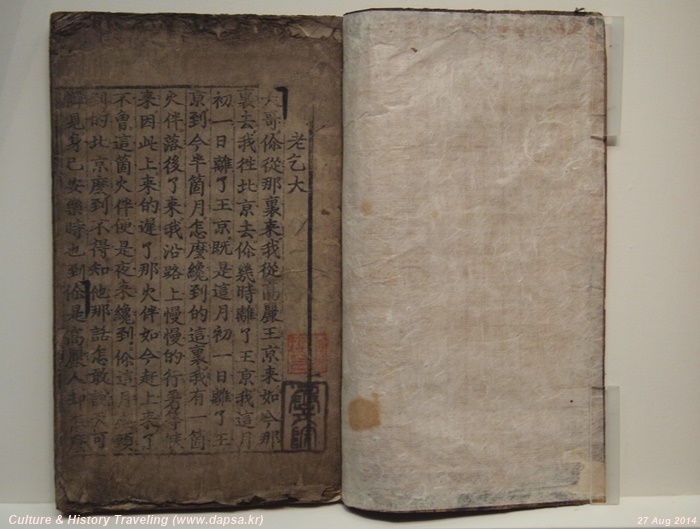 老乞大
大哥你從那裏來我從高麗王京來如今那
裏去我徃北京去你幾時離了王京我這月
初一日離了王京既是這月初一日離了王
京到今半箇月怎麽纔到的這裏我有一箇
火伴落後了來我沿路上慢慢的行著等候
來因此上來的遲了那火伴如今赶上來了
不曾這箇火伴便是夜來纔到你這月盡頭
到的北京麽到不得知他那話怎敢說天可
憐見身己安樂時也到你是高麗人却怎麽
Culture & History Traveling (www.dapsa.kr)
27 Aug 2014